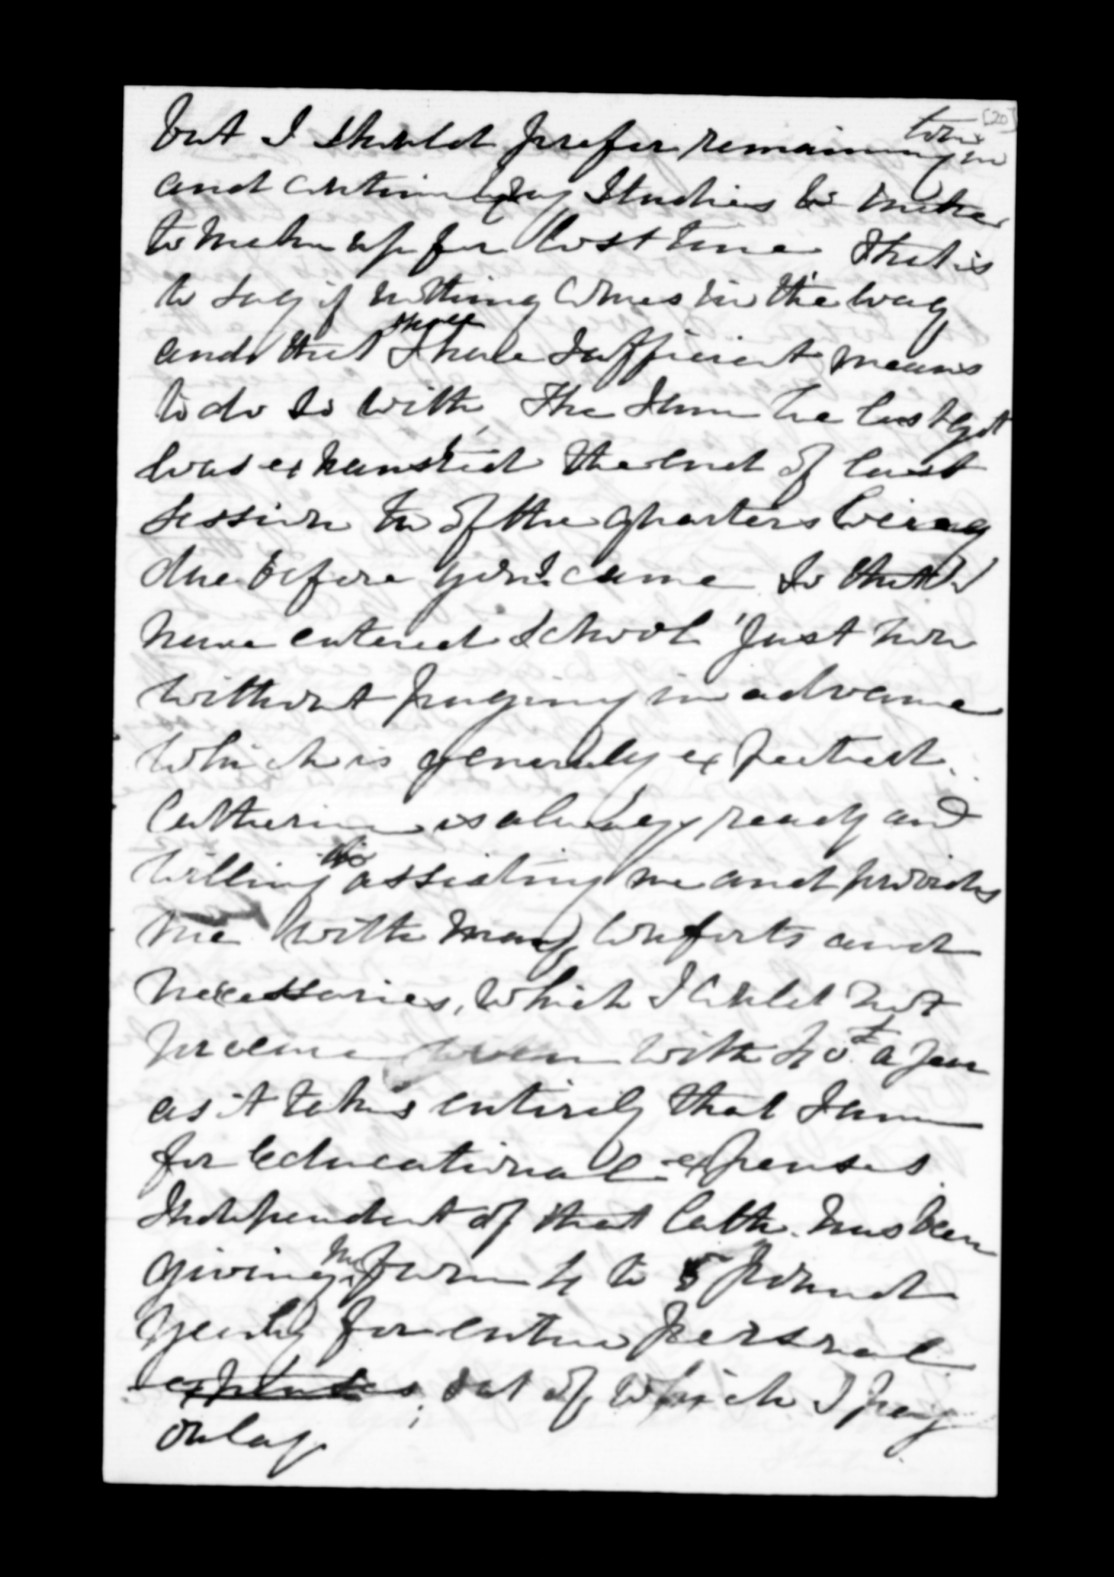 [20]
but I should prefer remaining in town
and continue my Studies in order
to make up for lost time That is
to say if nothing comes in the way
and that I shall have sufficient means
to do so with, The Sum he last got
was exhausted the end of last
session two of the quarters being
due before you came so that I
have entered school just now
without paying in advance
which is generally expected.
Catherine is always ready and
willing assisting me and provides
me with many comforts and
necessaries, which I could not
procure even with 40£ a year
as it takes entirely that Sum
for Educational expenses.
Independent of that Cath. has been
giving me from 4 to 5 pound
yearly for entire personal
expenses, out of which I pay